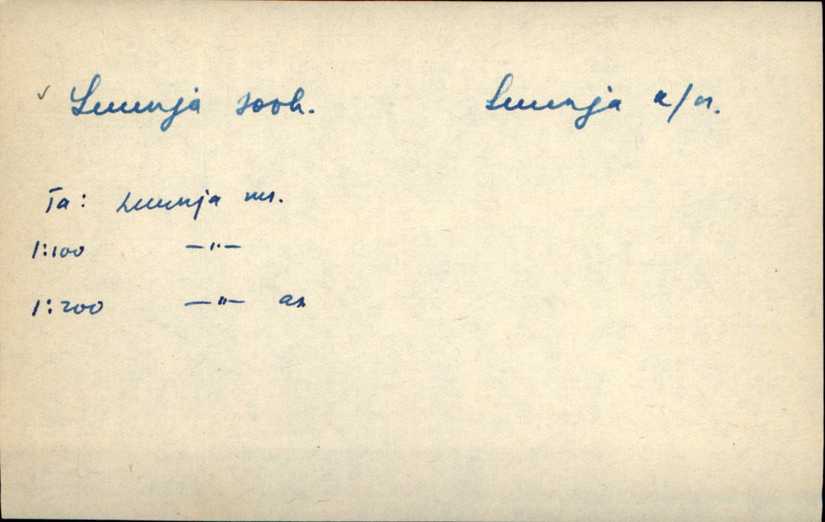 ✓ Luunja sooh. Luunja k/n.
Ta: Luunja ms.
1:100 —"—
1:200 —"— as